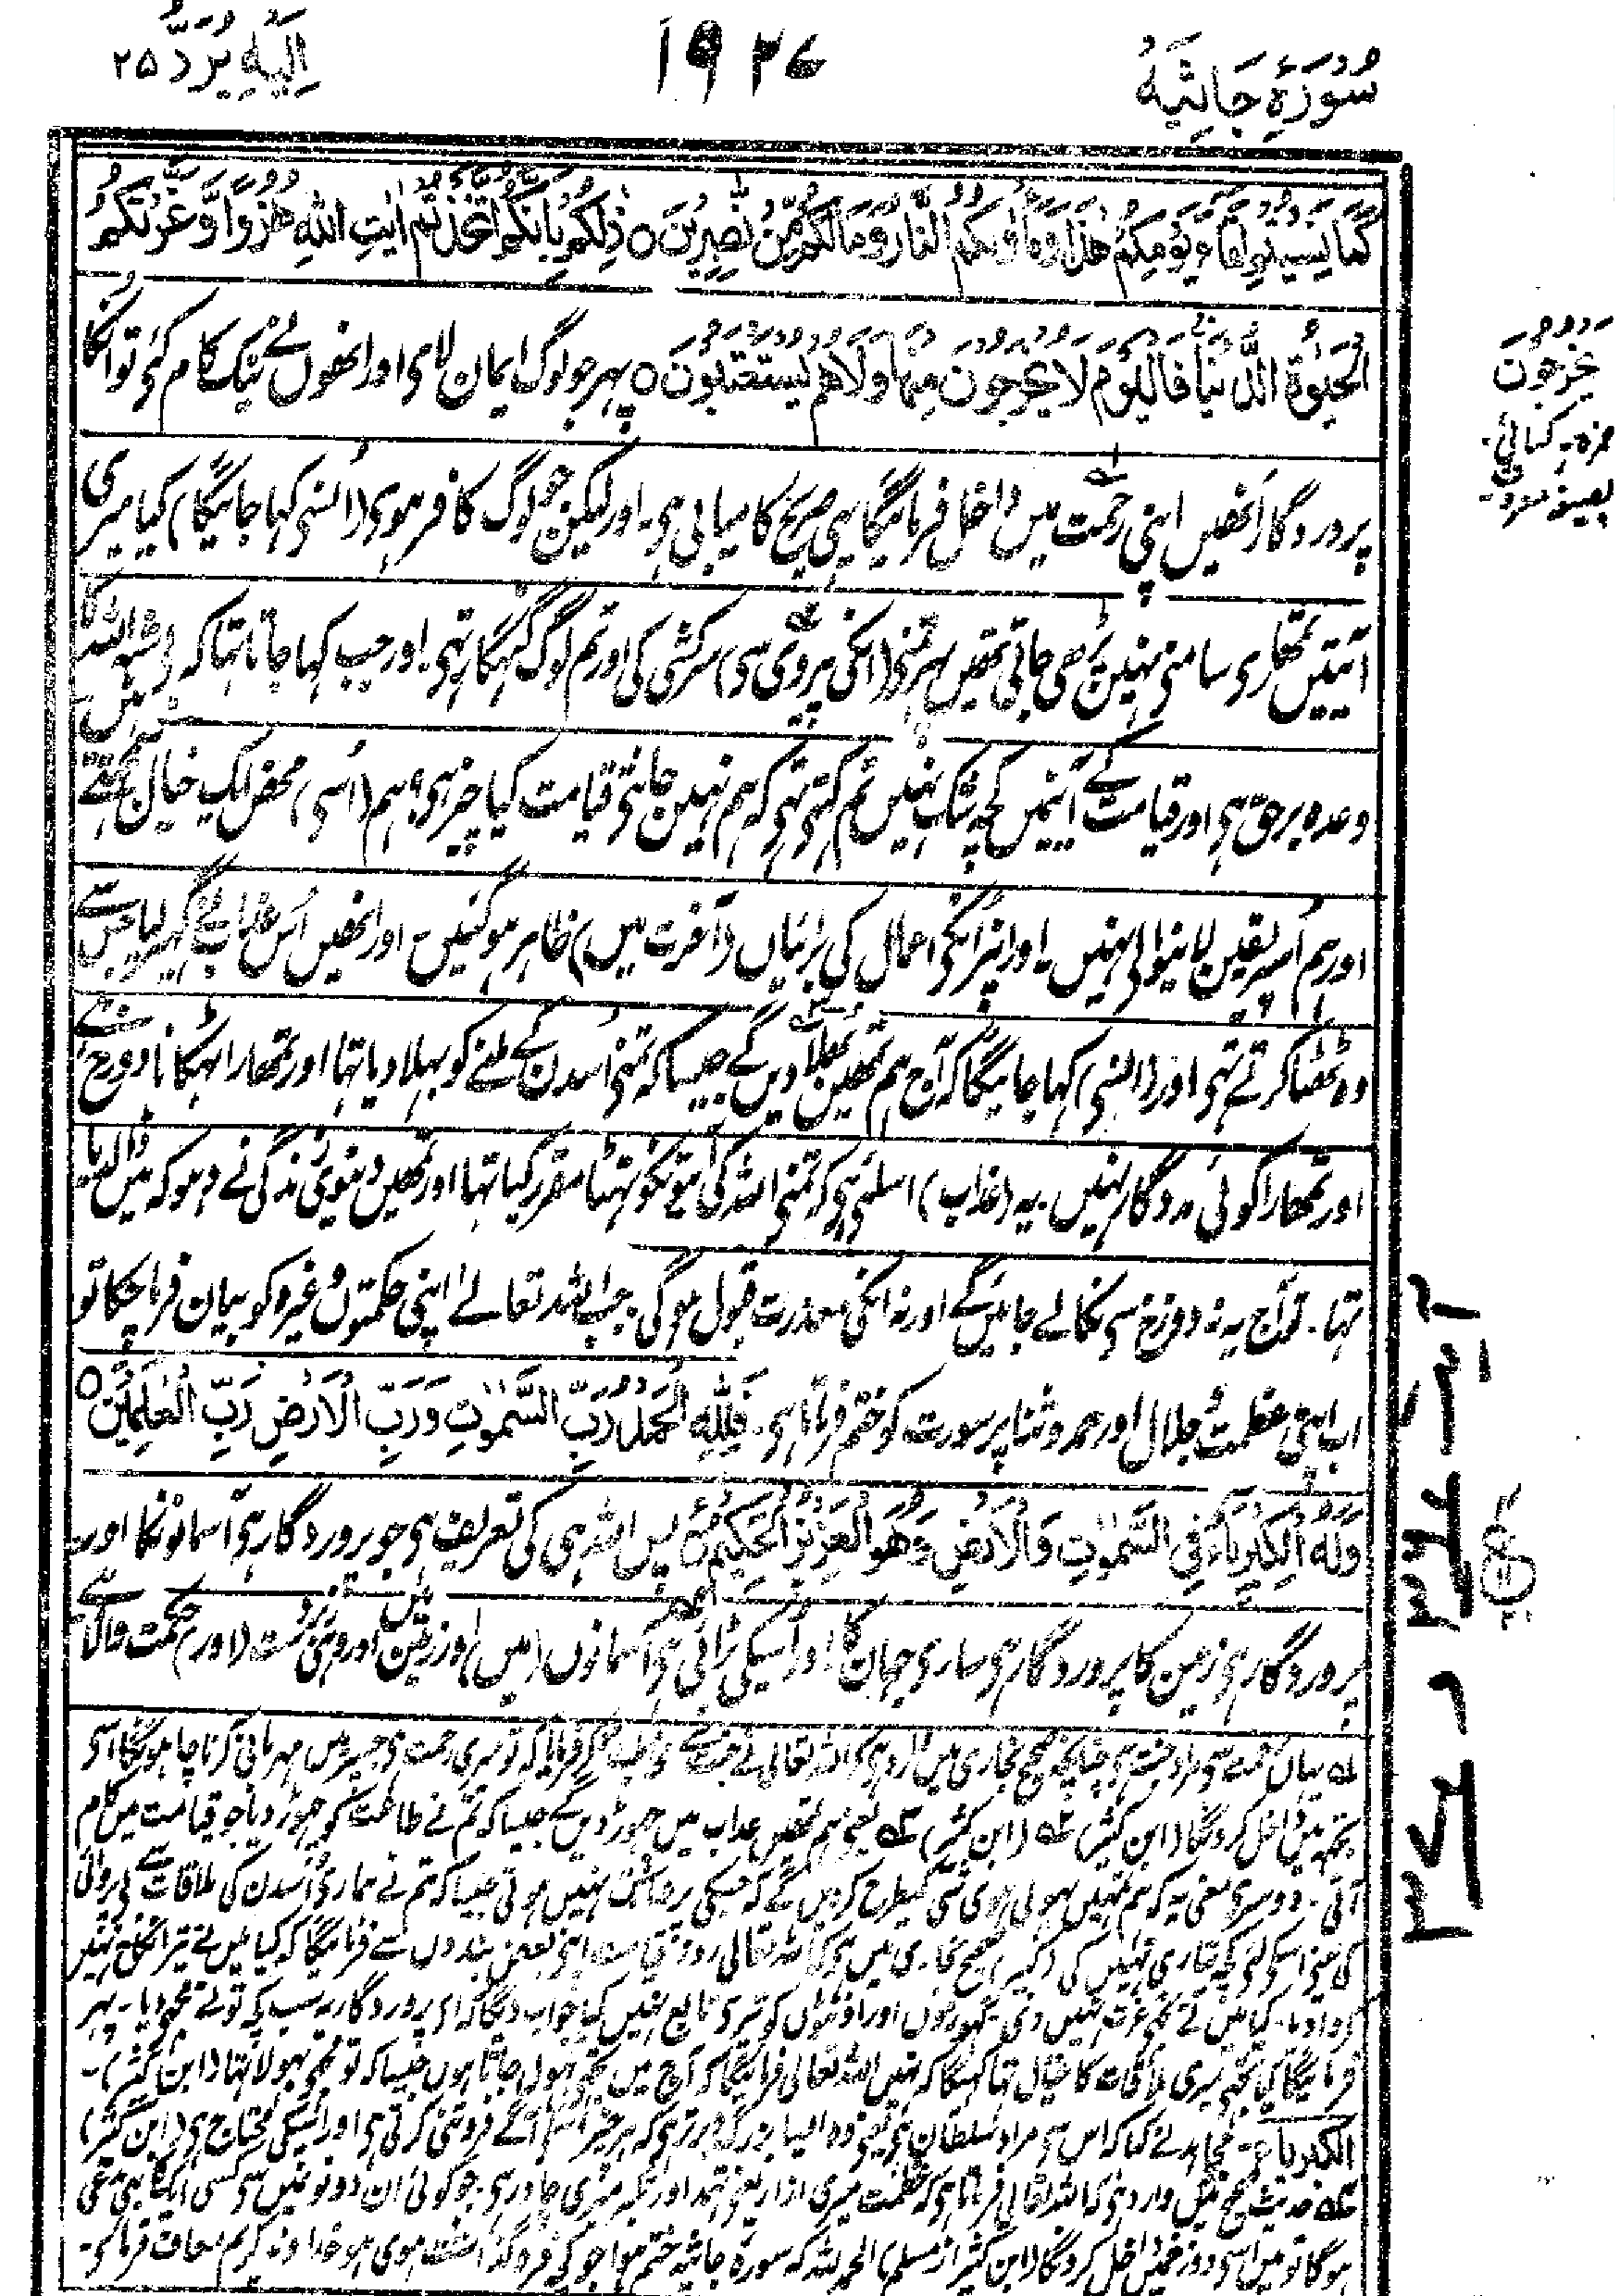 سُوْرَۃُ جَاثِیَۃُ
۱۹۲۷
اِلَیْہِ یُرَدُّ ۲۵
كَمَا نَسِيْتُمْ لِقَآءَ يَوْمِكُمْ هٰذَا وَمَاْوٰىكُمُ النَّارُ وَمَا لَكُمْ مِّنْ نّٰصِرِيْنَ ○ ذٰلِكُمْ بِاَنَّكُمُ اتَّخَذْتُمْ اٰيٰتِ اللّٰهِ هُزُوًا وَّغَرَّتْكُمُ
الْحَيٰوةُ الدُّنْيَا فَالْيَوْمَ لَا يُخْرَجُوْنَ مِنْهَا وَلَا هُمْ يُسْتَعْتَبُوْنَ ○ پہر جو لوگ ایمان لای اور انھوں نے نیک کام کئے تو انکا
یخرجون
پروردگار اُنھیں اپنی رحمت میں داخل فرمائیگا یہی صریح کامیابی ہی۔ اور لیکن جو لوگ کافر ہوی (اُنسی کہا جائیگا) کیا میری
آیتیں تمھاری سامنی نہیں پڑھی جاتی تھیں پہر تمنی (انکی پیروی سی) سرکشی کی اور تم لوگ گنہگار تہی۔ اور جب کہا جاتا تہا کہ اللہ کا
وعدہ برحق ہی اور قیامت کے آنیمیں کچہ شک نہیں تم کہتی تہی کہ ہم نہیں جانتی قیامت کیا چیز ہی، ہم (اُسی) محض ایک خیال سمجھتے ہیں
اور ہم اُسپر یقین لانیوالی نہیں۔ اور انپر انکی اعمال کی برائیاں (آخرت میں) ظاہر ہوگئیں۔ اور انھیں اُس عذاب نے گہیر لیا جس سے
وہ ٹھٹھا کرتے تہی اور (انسی) کہا جائیگا کہ آج ہم تمھیں بھلا دیں گے جیسا کہ تمنی اُسدن کے ملنے کو بہلا دیا تہا اور تمھارا ٹہکانا دوزخ ہے
اور تمھارا کوئی مددگار نہیں۔ یہ (عذاب) اسلئی ہی کہ تمنی اللہ کی آیتونکو ٹہٹا مقرر کیا تہا اور تمھیں دنیوی زندگی نے دہوکہ میں ڈالدیا
تہا۔ تو آج یہ نہ دوزخ سی نکالے جائیں گے اور نہ انکی معذرت قبول ہوگی۔ جب اللہ تعالے اپنی حکمتوں وغیرہ کو بیان فرما چکا تو
اب اپنی عظمت و جلال اور حمد و ثنا پر سورت کو ختم فرماتا ہی۔ فَلِلّٰهِ الْحَمْدُ رَبِّ السَّمٰوٰتِ وَرَبِّ الْاَرْضِ رَبِّ الْعٰلَمِيْنَ ○
وَلَهُ الْكِبْرِيَآءُ فِى السَّمٰوٰتِ وَالْاَرْضِ وَهُوَ الْعَزِيْزُ الْحَكِيْمُ پس اللہ ہی کی تعریف ہی جو پروردگار ہی آسمانونکا اور
پروردگار ہی زمین کا پروردگار ہی ساری جہان کا۔ اور اُسیکی بڑائی ہی آسمانوں (میں) اور زمین میں اور وہی زبردست (اور) حکمت والا ہے
لہ یہاں رحمت سی مراد جنت ہی چنانچہ صحیح بخاری میں وارد ہی کہ اللہ تعالی نے جنت سے فرمایا کہ تو میری رحمت ہی جسپر میں مہربانی کرنا چاہونگا اسی
تجہہ میں داخل کرونگا (ابن کثیر) (ابن کثیر) یعنی ہم تمھیں عذاب میں چہوڑ دیں گے جیسا کہ تم نے طاعت کو چہوڑ دیا جو قیامت میں کام
آتی۔ دوسری معنی یہ کہ ہم تمہیں بہولی ہوی شی کیطرح کردیں گے کہ جسکی نہیں ہوتی جیسا کہ تم نے ہماری اُسدن کی ملاقات سے
کی یعنی اسکو لئی کچہ تیاری نہیں کی (کبیر) صحیح بخاری میں ہی کہ اللہ تعالی روز قیامت اپنی بعض بندوں سے فرمائیگا کہ کیا میں نے تیرا نکاح نہیں
کروا دیا۔ کیا میں نے تجہی عزت نہیں دی۔ گہوڑوں اور اونٹوں کو تیری تابع نہیں کیا جواب دیگا کہ ای پروردگار یہ سب کچہ تونے مجہی دیا۔ پہر
فرمائیگا کیا تجہی میری ملاقات کا خیال تہا کہیگا کہ نہیں اللہ تعالی فرمائیگا کہ آج میں تجہی بہول جاتا ہوں جیسا کہ تو مجہی بہولا تہا (ابن کثیر)۔
الکبریاء۔ مجاہد نے کہا کہ اس سی مراد سلطان ہی یعنی وہ ایسا بزرگ و برتر ہی کہ ہر چیز اسکی آگے فروتنی کرتی ہی اور اُسیکی محتاج ہی (ابن کثیر)
حدیث صحیح میں وارد ہی کہ اللہ تعالی فرماتا ہی کہ عظمت میری ازار یعنی تہمد اور تکبر میری چادر ہی۔ جو کوئی ان دونوں میں سی کسی ایک کا بہی مدعی
ہوگا تو میں اسی دوزخ میں داخل کرونگا (ابن کثیر از مسلم) الحمد للہ کہ سورۃ جاثیہ ختم ہوا جو کچھ فروگذاشت ہوی ہو خداوند کریم معاف فرمائے۔